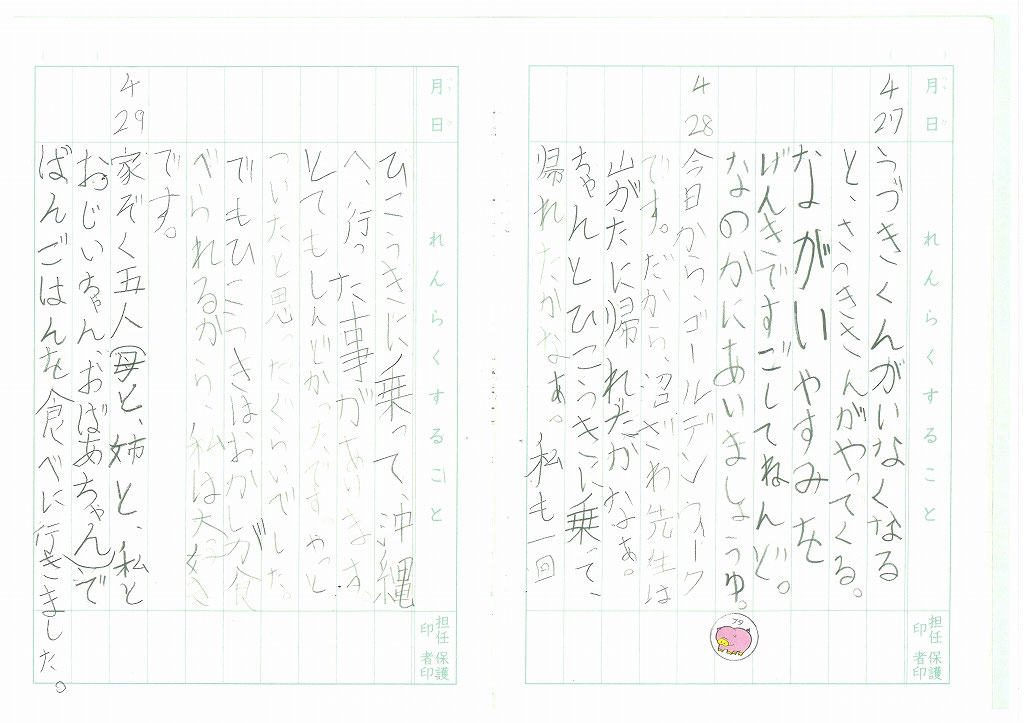 月 日 れんらくすること 担任印 保護者印
4 27 うづきくんがいなくなる
と、さつきさんがやってくる。
ながいやすみを
げんきですごしてねんど。
なのかにあいましょうゆ。
79
4 28 今日から、ゴールデンウィーク
です。だから、沼ざわ先生は
山がたに帰れたかなぁ。
ちゃんとひこうきに乗って、
帰れたかなぁ。私も一回
月 日 れんらくすること 担任印 保護者印
ひこうきに乗って、沖縄
へ、行った事があります。
とてもしんどかったです。やっと
ついたと思ったぐらいでした。
でもひこうきはおかしが食
べられるから、私は大好き
です。
4 29 家ぞく五人(母と、姉と、私と
おじいちゃん、おばあちゃん)で
ばんごはんを食べに行きました。